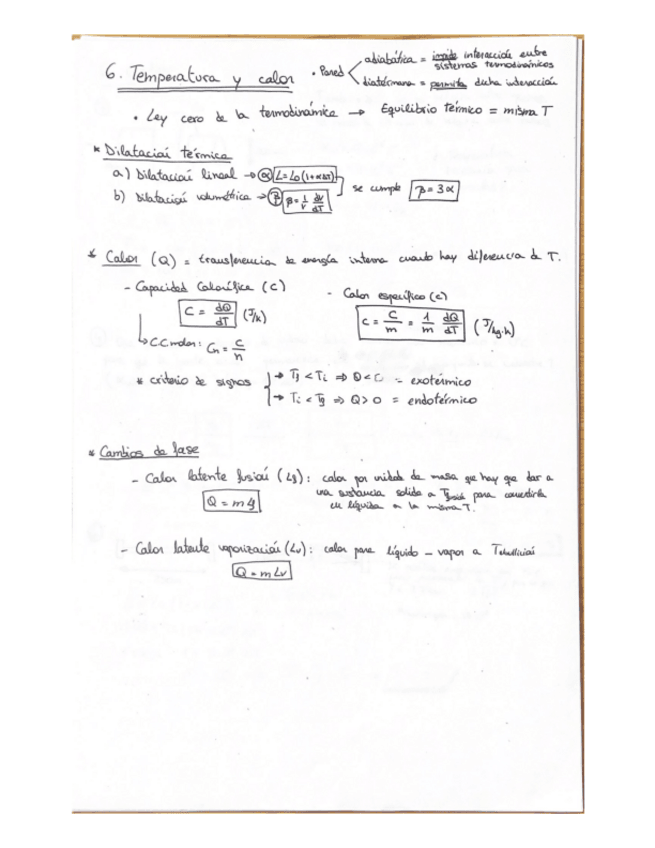 6. Temperatura y calor • Pared
adiabática = impide interacción entre sistemas termodinámicos
diatérmana = permite dicha interacción
• Ley cero de la termodinámica → Equilibrio térmico = misma T
* Dilatación térmica
a) Dilatación lineal → α L = L0 (1+αΔT)
b) Dilatación volumétrica → β β = 1/V dV/dT
se cumple β = 3α
* Calor (Q) = transferencia de energía interna cuando hay diferencia de T.
- Capacidad Calorífica (C)
C = dQ/dT (J/K)
↳ CC molar: Cn = C/n
- Calor específico (c)
c = C/m = 1/m dQ/dT (J/kg·K)
* criterio de signos
→ Tf < Ti ⇒ Q < 0 = exotérmico
→ Ti < Tf ⇒ Q > 0 = endotérmico
* Cambios de fase
- Calor latente fusión (Lf): calor por unidad de masa que hay que dar a
una sustancia solida a Tfusión para convertirla
en líquida a la misma T.
Q = m Lf
- Calor latente vaporización (Lv): calor para líquido – vapor a Tebullición
Q = m Lv